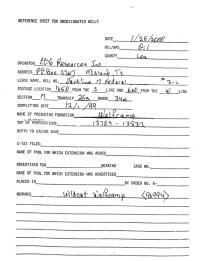 REFERENCE SHEET FOR UNDESIGNATED WELLS
DATE 1/25/2000
OIL/GAS Oil
COUNTY Lea
OPERATOR EOG Resources Inc
ADDRESS PO Box 2267 Midland, Tx
LEASE NAME, WELL NO. Federal #
FOOTAGE LOCATION FROM THE S LINE AND 660 FROM THE LINE
SECTION TOWNSHIP RANGE
COMPLETION DATE 12/1/99
NAME OF PRODUCING FORMATION Wolfcamp
TOP OF PERFORATIONS
DEPTH TO CASING SHOE
C-123 FILED
NAME OF POOL FOR WHICH EXTENSION WAS ASKED
ADVERTISED FOR HEARING CASE NO.
NAME OF POOL FOR WHICH EXTENSION WAS ADVERTISED
PLACED IN BY ORDER NO. R-
REMARKS Wildcat Wolfcamp